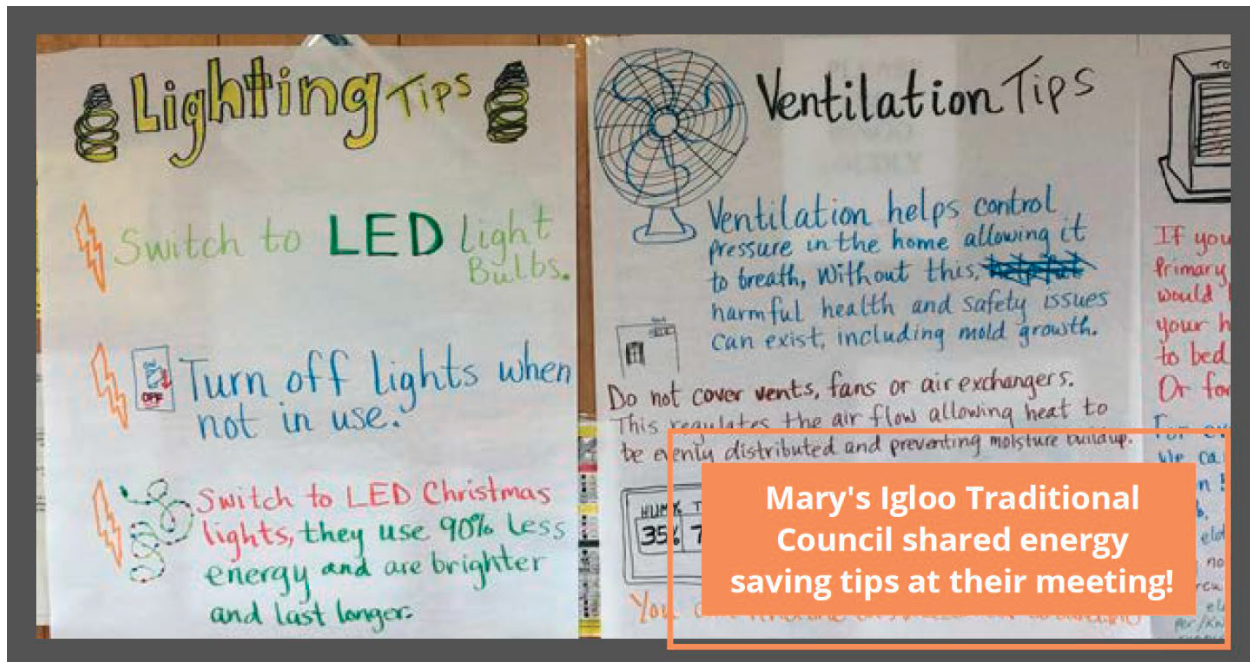 Lighting Tips
Switch to LED Light
Bulbs.
OFF
Turn off lights when
not in use.
Switch to LED Christmas
lights, they use 90% Less
energy and are brighter
and last longer.
Ventilation Tips
Ventilation helps control
pressure in the home allowing it
to breath, Without this,
harmful health and safety issues
can exist, including mold growth.
Do not cover vents, fans or air exchangers.
This regulates the air flow allowing heat to
be evenly distributed and preventing moisture buildup.
35%
You
If you
Primary
would
your h
to bed
Or for
We ca
Mary's Igloo Traditional
Council shared energy
saving tips at their meeting!